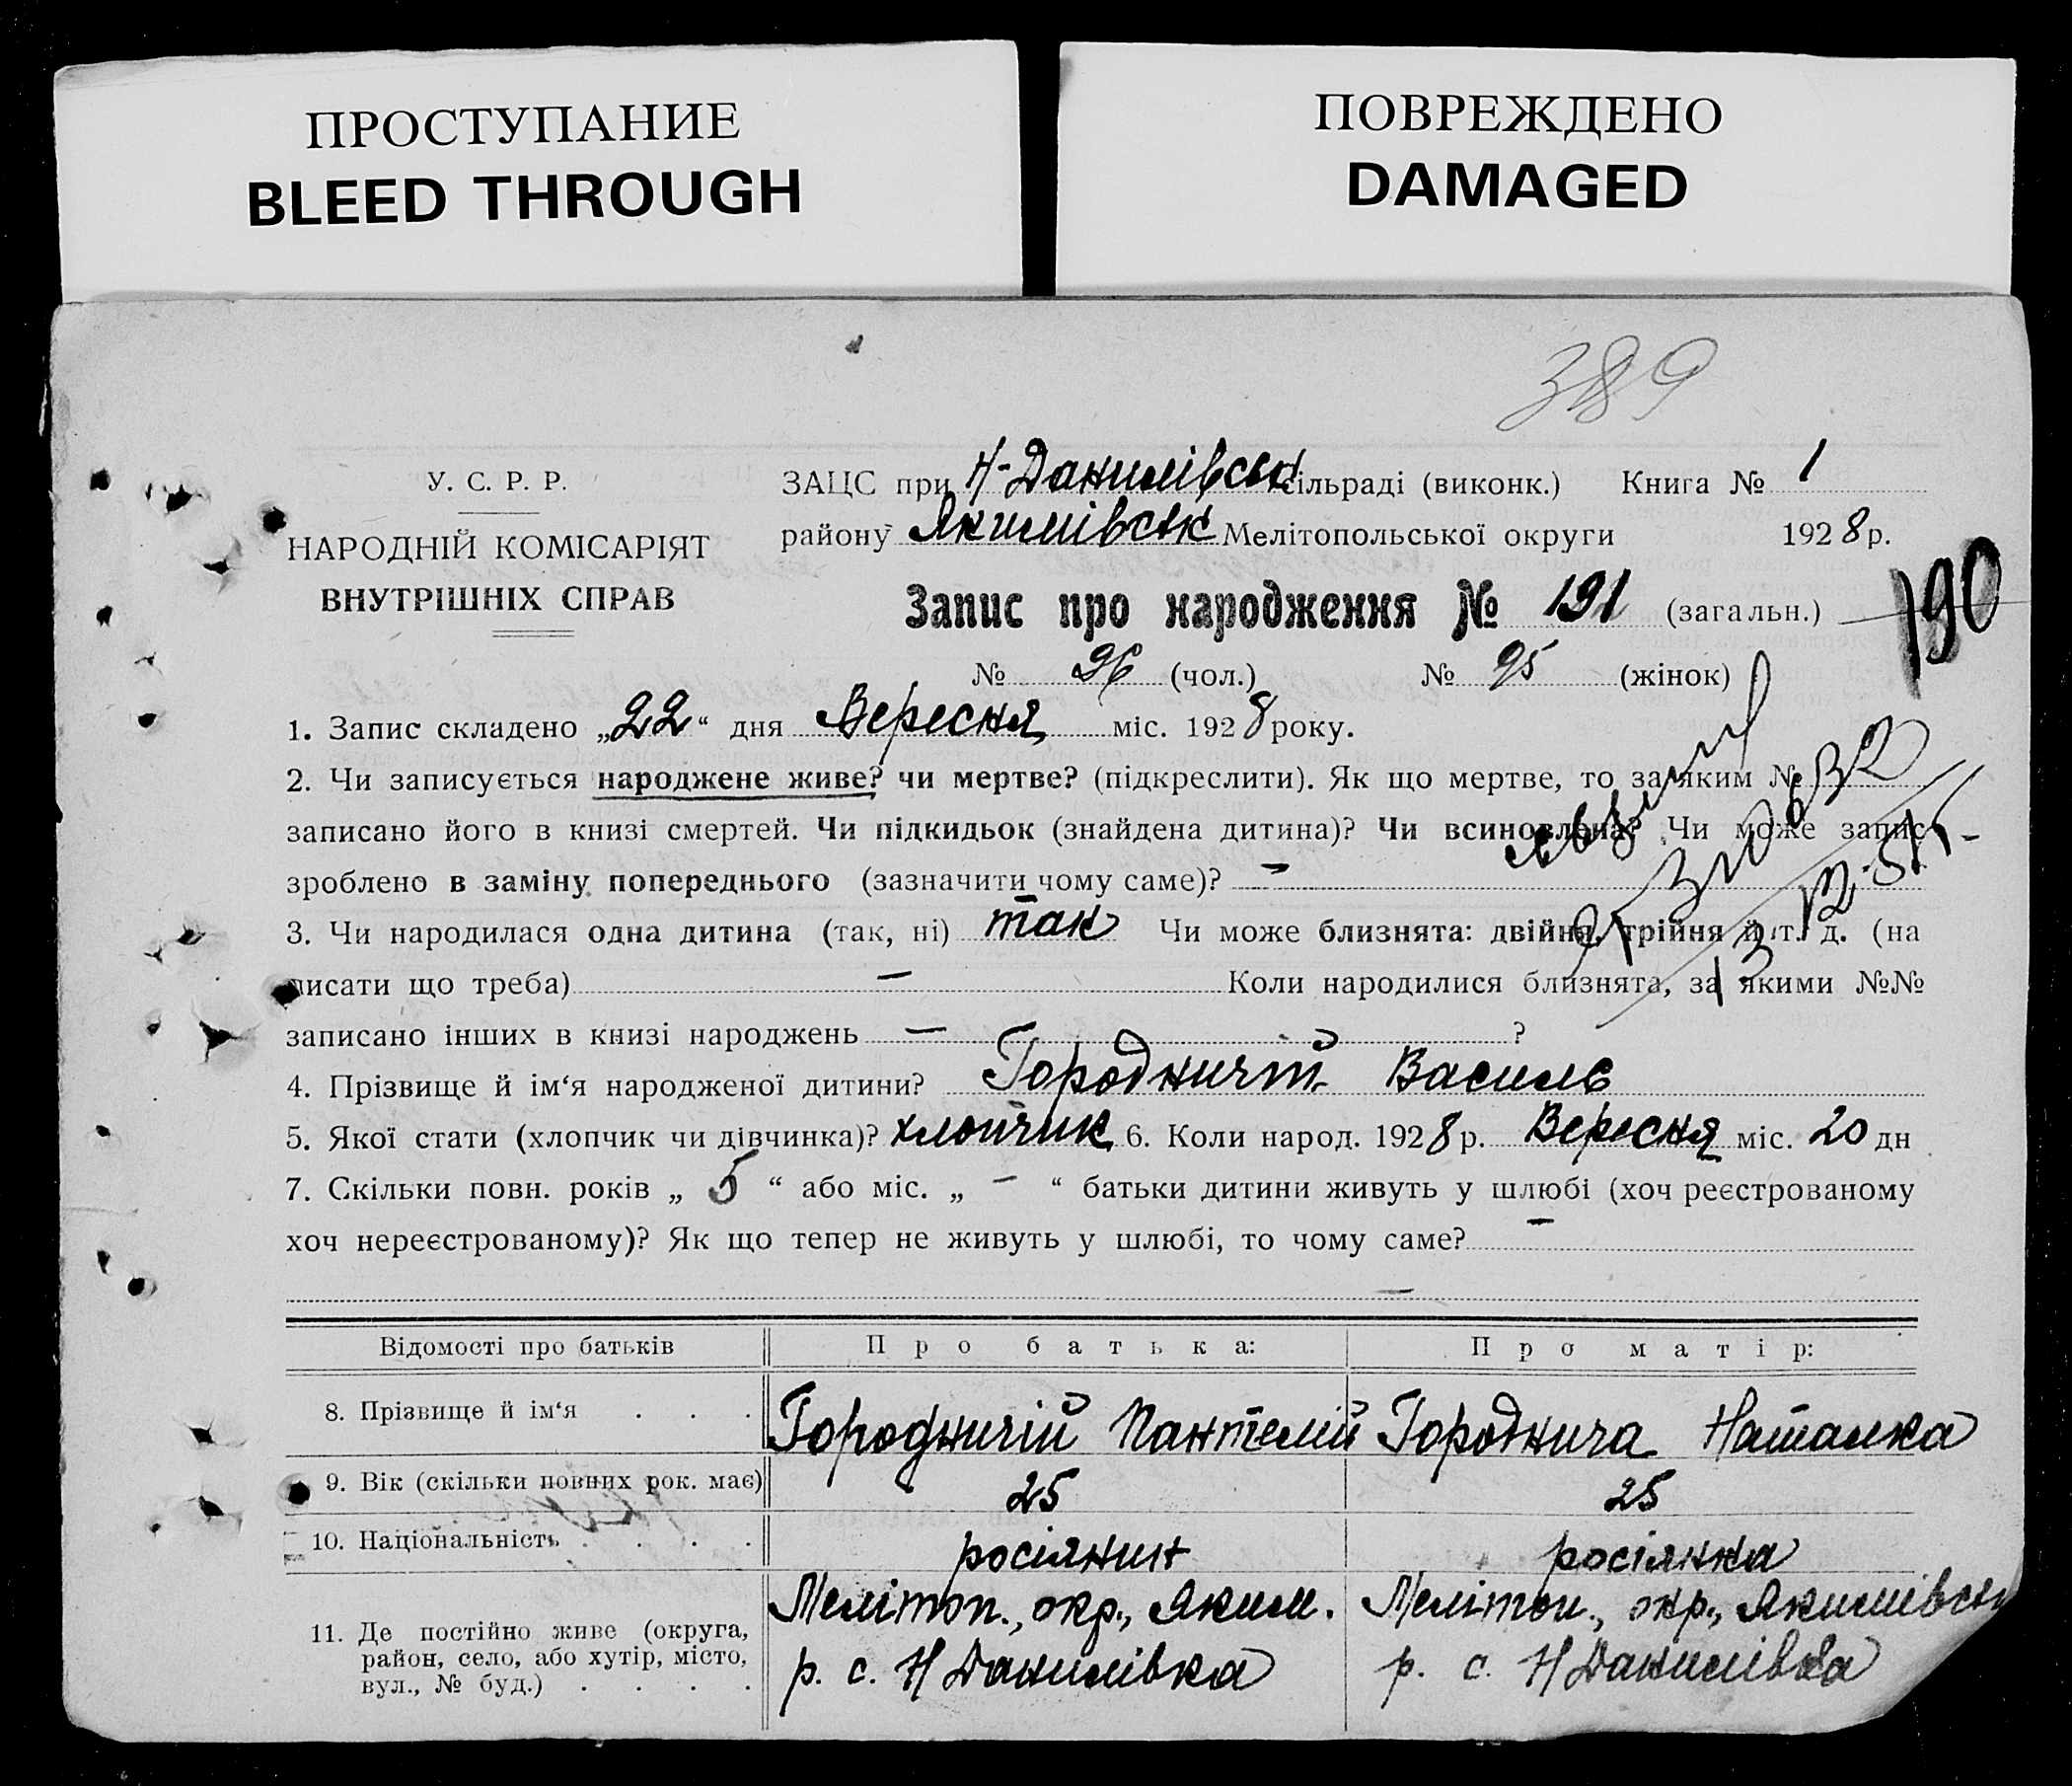 ПРОСТУПАНИЕ
BLEED THROUGH
ПОВРЕЖДЕНО
DAMAGED
389
У. С. Р. Р.
НАРОДНІЙ КОМІСАРІЯТ
ВНУТРІШНІХ СПРАВ
ЗАЦС при Н-Данилівськ сільраді (виконк.) Книга № 1
району Якимівськ Мелітопольської округи 1928 р.
Запис про народження № 191 (загальн.) 190
№ 96 (чол.) № 95 (жінок)
1. Запис складено „22“ дня Вересня міс. 1928 року.
2. Чи записується народжене живе? чи мертве? (підкреслити). Як що мертве, то за яким №
записано його в книзі смертей. Чи підкидьок (знайдена дитина)? Чи всиновлена? Чи може запис
зроблено в заміну попереднього (зазначити чому саме)? –
3. Чи народилася одна дитина (так, ні) так Чи може близнята: двійня, трійня й т. д. (на
писати що треба) – Коли народилися близнята, за якими №№
записано інших в книзі народжень – ?
4. Прізвище й ім‘я народженої дитини? Городничій Василь
5. Якої стати (хлопчик чи дівчинка)? хлопчик 6. Коли народ. 1928 р. Вересня міс. 20 дн
7. Скільки повн. років „ 5 “ або міс. „ – “ батьки дитини живуть у шлюбі (хоч реєстрованому
хоч нереєстрованому)? Як що тепер не живуть у шлюбі, то чому саме? –
–
Відомості про батьків Про батька: Про матір:
8. Прізвище й ім‘я . . . Городничій Пантелій Городнича Наталка
9. Вік (скільки повних рок. має) 25 25
10. Національність . . . . росіянин росіянка
11. Де постійно живе (округа, район, село, або хутір, місто, вул., № буд.) . . . .
Мелітоп., окр., Яким. р. с. Н Данилівка
Мелітоп., окр., Якимівськ р. с. Н Данилівка